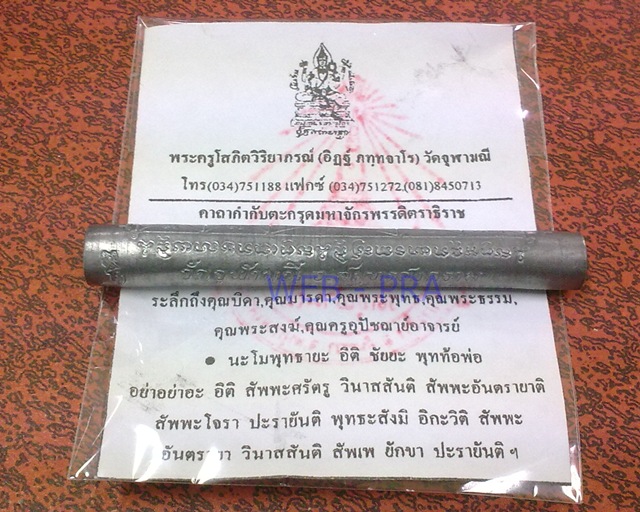 พระครูโสภิตวิริยาภรณ์ (อิฏฐ์ ภทฺทจาโร) วัดจุฬามณี
โทร(034)751188 แฟกซ์ (034)751272,(081)8450713
คาถากำกับตะกรุดมหาจักรพรรดิตราธิราช
WEB - PRA
ระลึกถึงคุณบิดา,คุณมารดา,คุณพระพุทธ,คุณพระธรรม,
คุณพระสงฆ์,คุณครูอุปัชฌาย์อาจารย์
● นะโมพุทธายะ อิติ ชัยยะ พุทท้อพ่อ
อย่าอย่าอะ อิติ สัพพะศรัตรู วินาสสันติ สัพพะอันตรายาติ
สัพพะโจรา ปะรายันติ พุทธะสังมิ อิกะวิติ สัพพะ
อันตรายา วินาสสันติ สัพเพ ยักขา ปะรายันติ ฯ